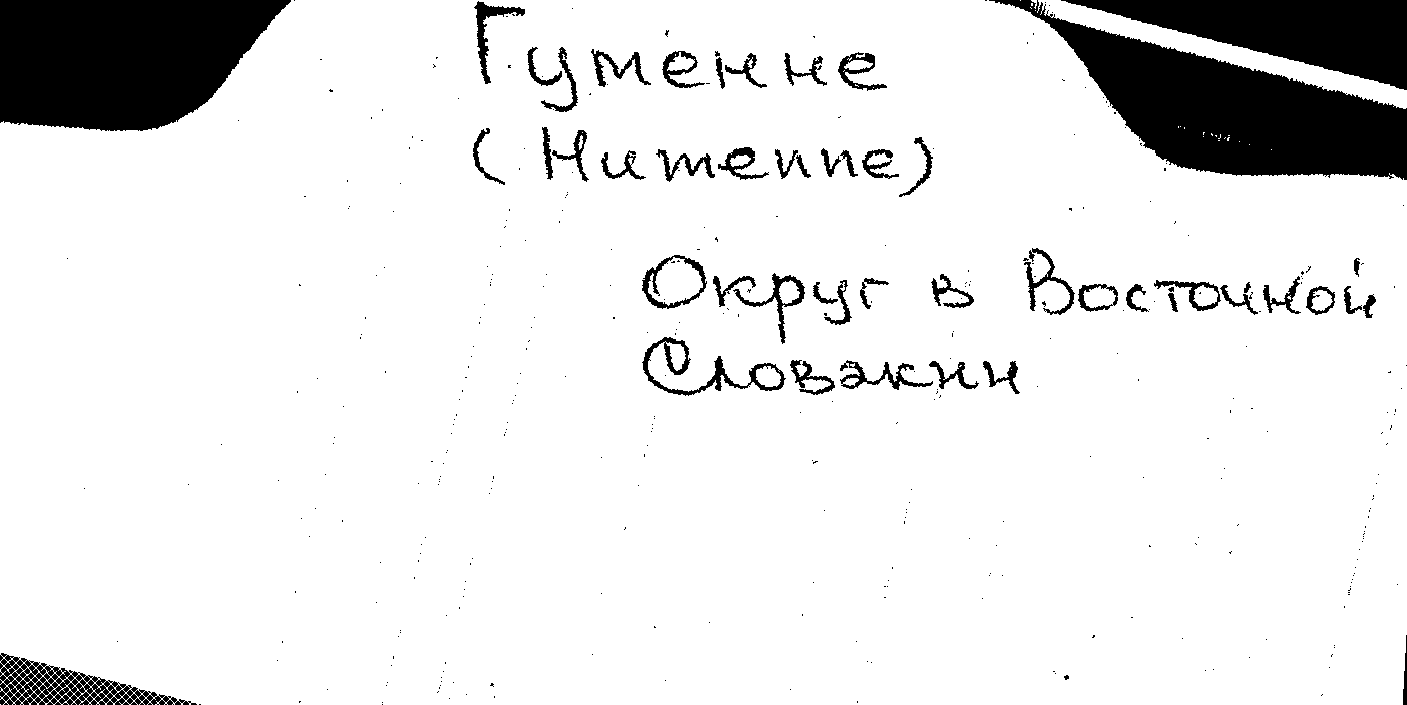 Гуменне
(Humenne)
Округ в Восточной
Словакии